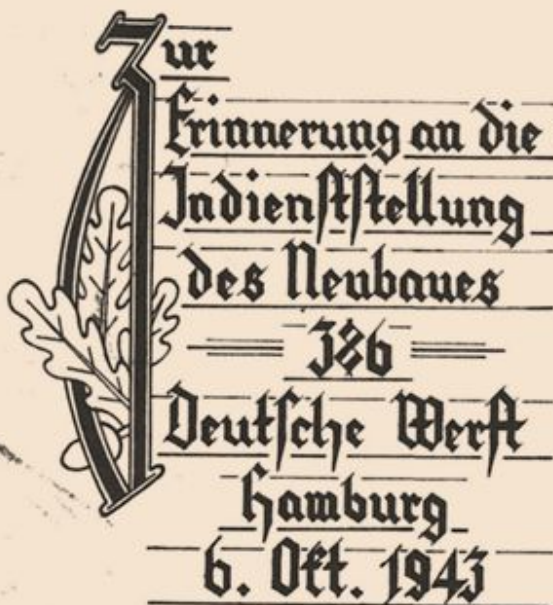 Zur
Erinnerung an die
Indienststellung
des Neubaues
386
Deutsche Werft
Hamburg
6. Okt. 1943